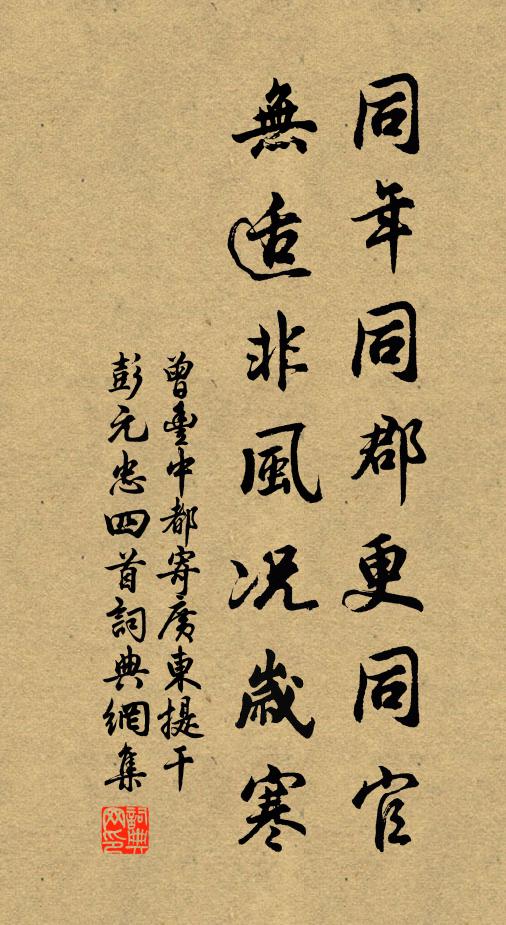 同年同郡更同官
無适非風況歲寒
曾豐中都寄廣東提干
彭元忠四首詞典網集
詞典网印